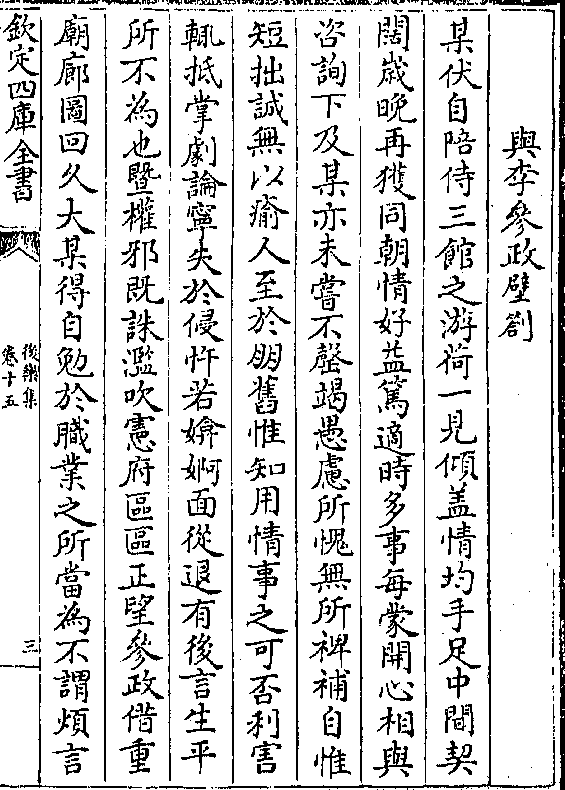 與李參政壁劄
某伏自陪侍三館之游荷一見傾盖情均手足中間契
闊歲晩再獲同朝情好益篤適時多事每蒙開心相與
咨詢下及某亦未嘗不罄竭愚慮所愧無所裨補自惟
短拙誠無以瘉人至於朋舊惟知用情事之可否利害
輒抵掌劇論寧失於侵忤若婩婀面從退有後言生平
所不為也暨權邪既誅濫吹憲府區區正望參政借重
廟廊圖回久大某得自勉於職業之所當為不謂煩言
欽定四庫全書
後樂集
卷十五
三